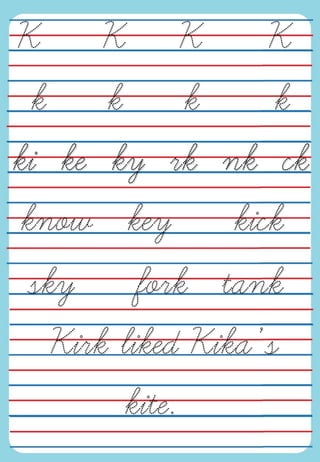 K K K K
k k k k
ki ke ky rk nk ck
know key kick
sky fork tank
Kirk liked Kika's
kite.